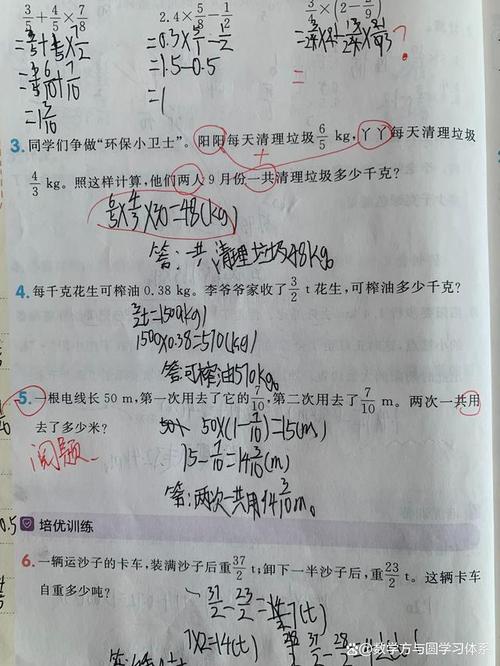 3/5+4/5×7/8 2.4×5/8-1/2 3/4×(2-2/9)
=0.3×5/1-1/2
=1.5-0.5
=1
?
3.同学们争做“环保小卫士”。阳阳每天清理垃圾6/5 kg,丫丫每天清理垃圾
+
4/3 kg。照这样计算,他们两人9月份一共清理垃圾多少千克?
6/5×4/3×30=48(kg)
答:一共清理垃圾48kg。
4.每千克花生可榨油0.38 kg。李爷爷家收了3/2 t花生,可榨油多少千克?
3/2t=1500(kg)
1500×0.38=570(kg)
答可榨油570kg。
5.一根电线长50 m,第一次用去了它的7/10,第二次用去了7/10 m。两次一共用
去了多少米?
50×(1-7/10)=15(m)
阅题
15-7/10=14 3/10(m)
答:两次一共用14 3/10m。
培优训练
6.一辆运沙子的卡车,装满沙子后重37/2 t;卸下一半沙子后,重23/2 t。这辆卡车
自重多少吨?
37/2-23/2=7(t)
7×2=14(t)
@数学方与圆学习体系